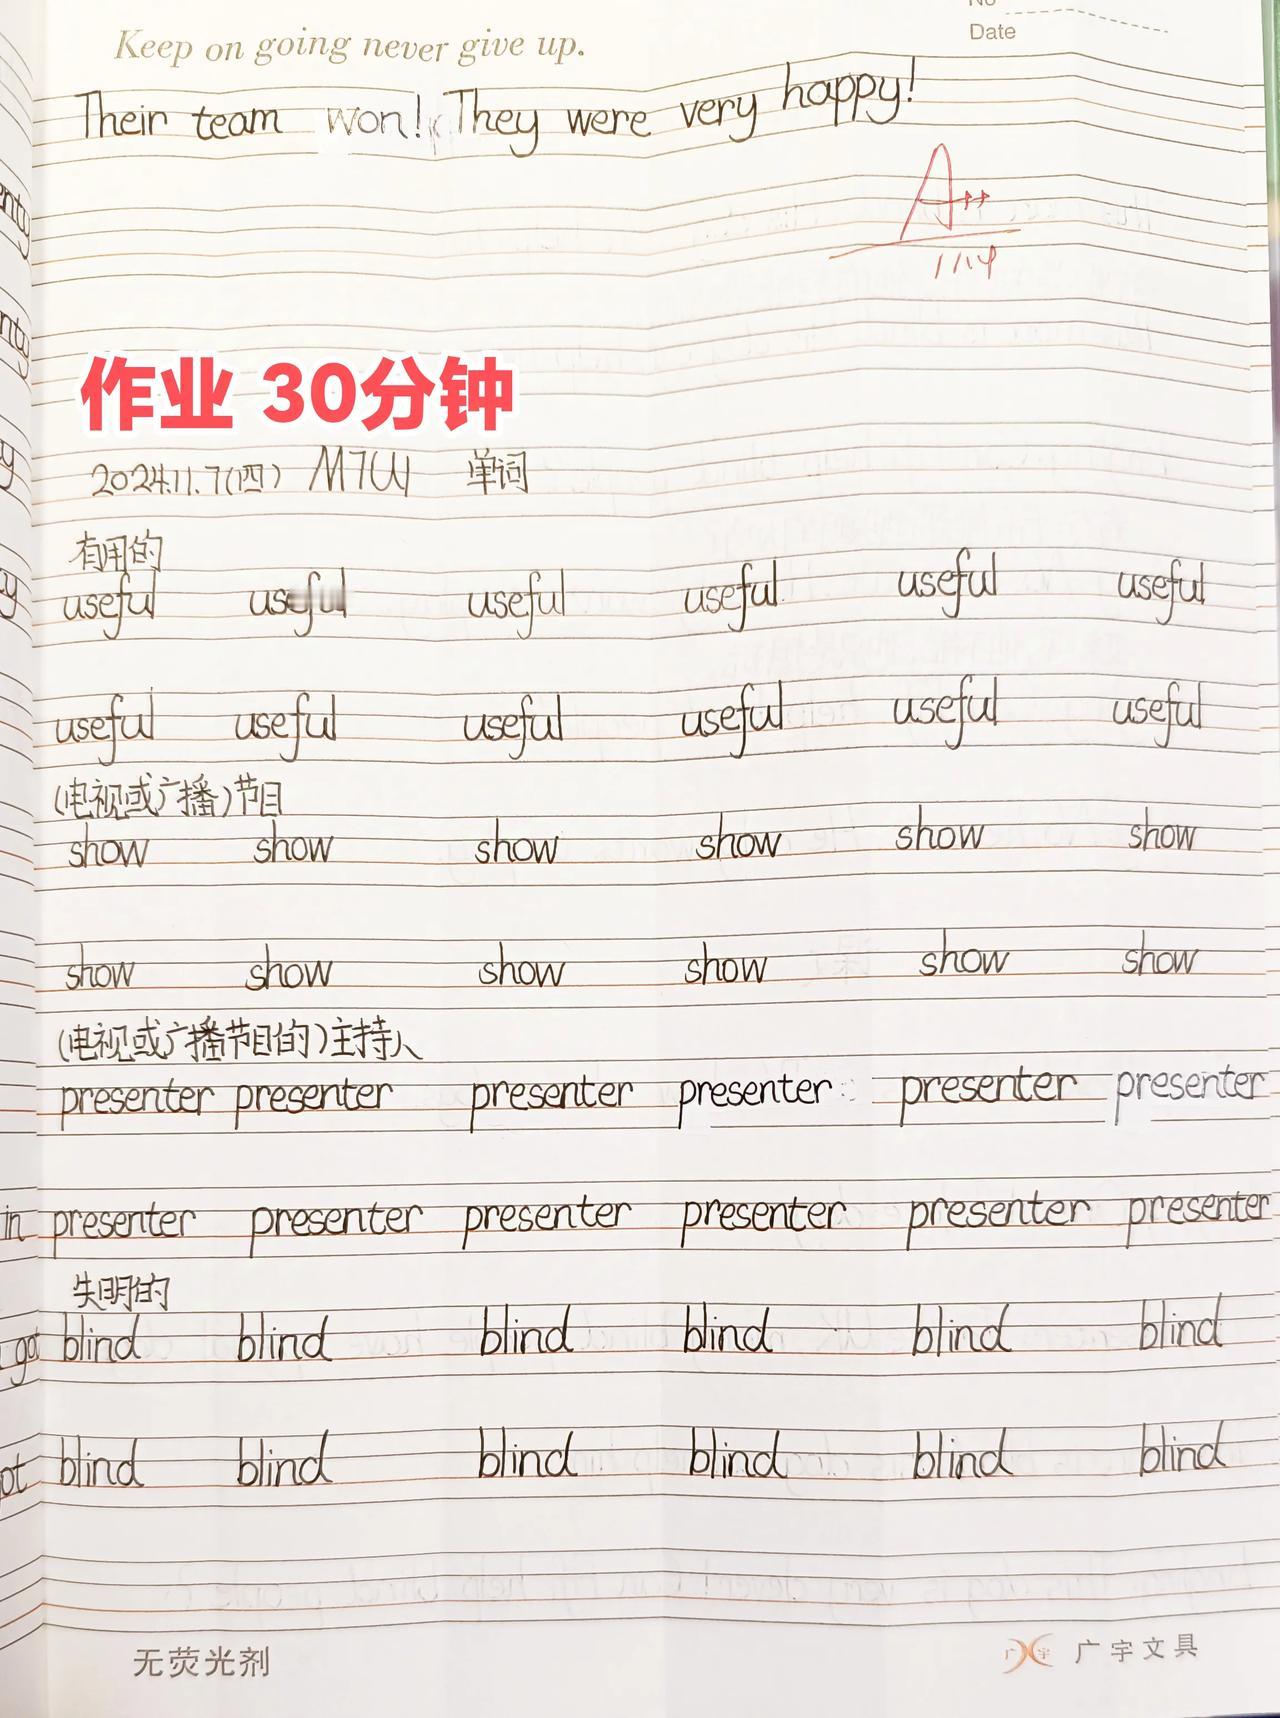 No
Date
Keep on going never give up.
Their team won! They were very happy!
A++
11.14
作业 30分钟
2024.11.7(四) M7U1 单词
有用的
useful useful useful useful useful useful
useful useful useful useful useful useful
(电视或广播)节目
show show show show show show
show show show show show show
(电视或广播节目的)主持人
presenter presenter presenter presenter presenter presenter
in presenter presenter presenter presenter presenter presenter
失明的
got blind blind blind blind blind blind
blind blind blind blind blind blind
无荧光剂
广宇文具